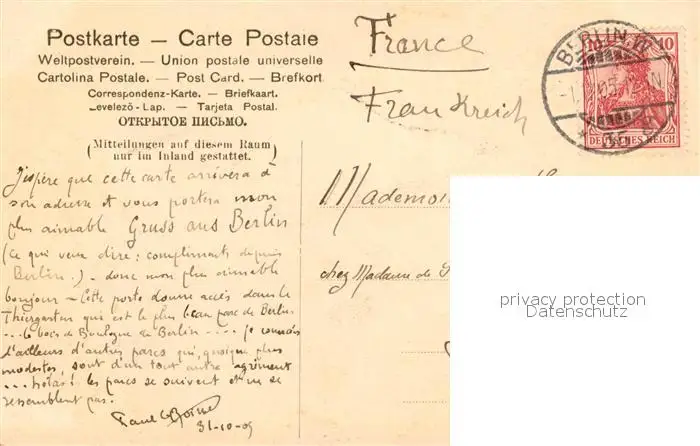 Postkarte — Carte Postale
Weltpostverein. — Union postale universelle
Cartolina Postale. — Post Card. — Brefkort
Correspondenz-Karte. — Briefkaart.
Levelező-Lap. — Tarjeta Postal.
ОТКРЫТОЕ ПИСЬМО.
(Mitteilungen auf diesem Raum
nur im Inland gestattet.)
J'espère que cette carte arrivera à
son adresse et vous portera mon
plus aimable Gruss aus Berlin
(ce qui veut dire : compliments depuis
Berlin.) - donc mon plus aimable
bonjour - Cette porte donne accès dans le
Thiergarten qui est le plus beau parc de Berlin
... le bois de Boulogne de Berlin .... je connais
d'ailleurs d'autres parcs qui, quoique plus
modestes, sont d'un tout autre agrément
... hélas! les parcs se suivent et ne se
ressemblent pas.
Paul
31-10-05
France
Frankreich
BERLIN, W
10 10
DEUTSCHES REICH
Mademoi
chez Madame de
privacy protection
Datenschutz